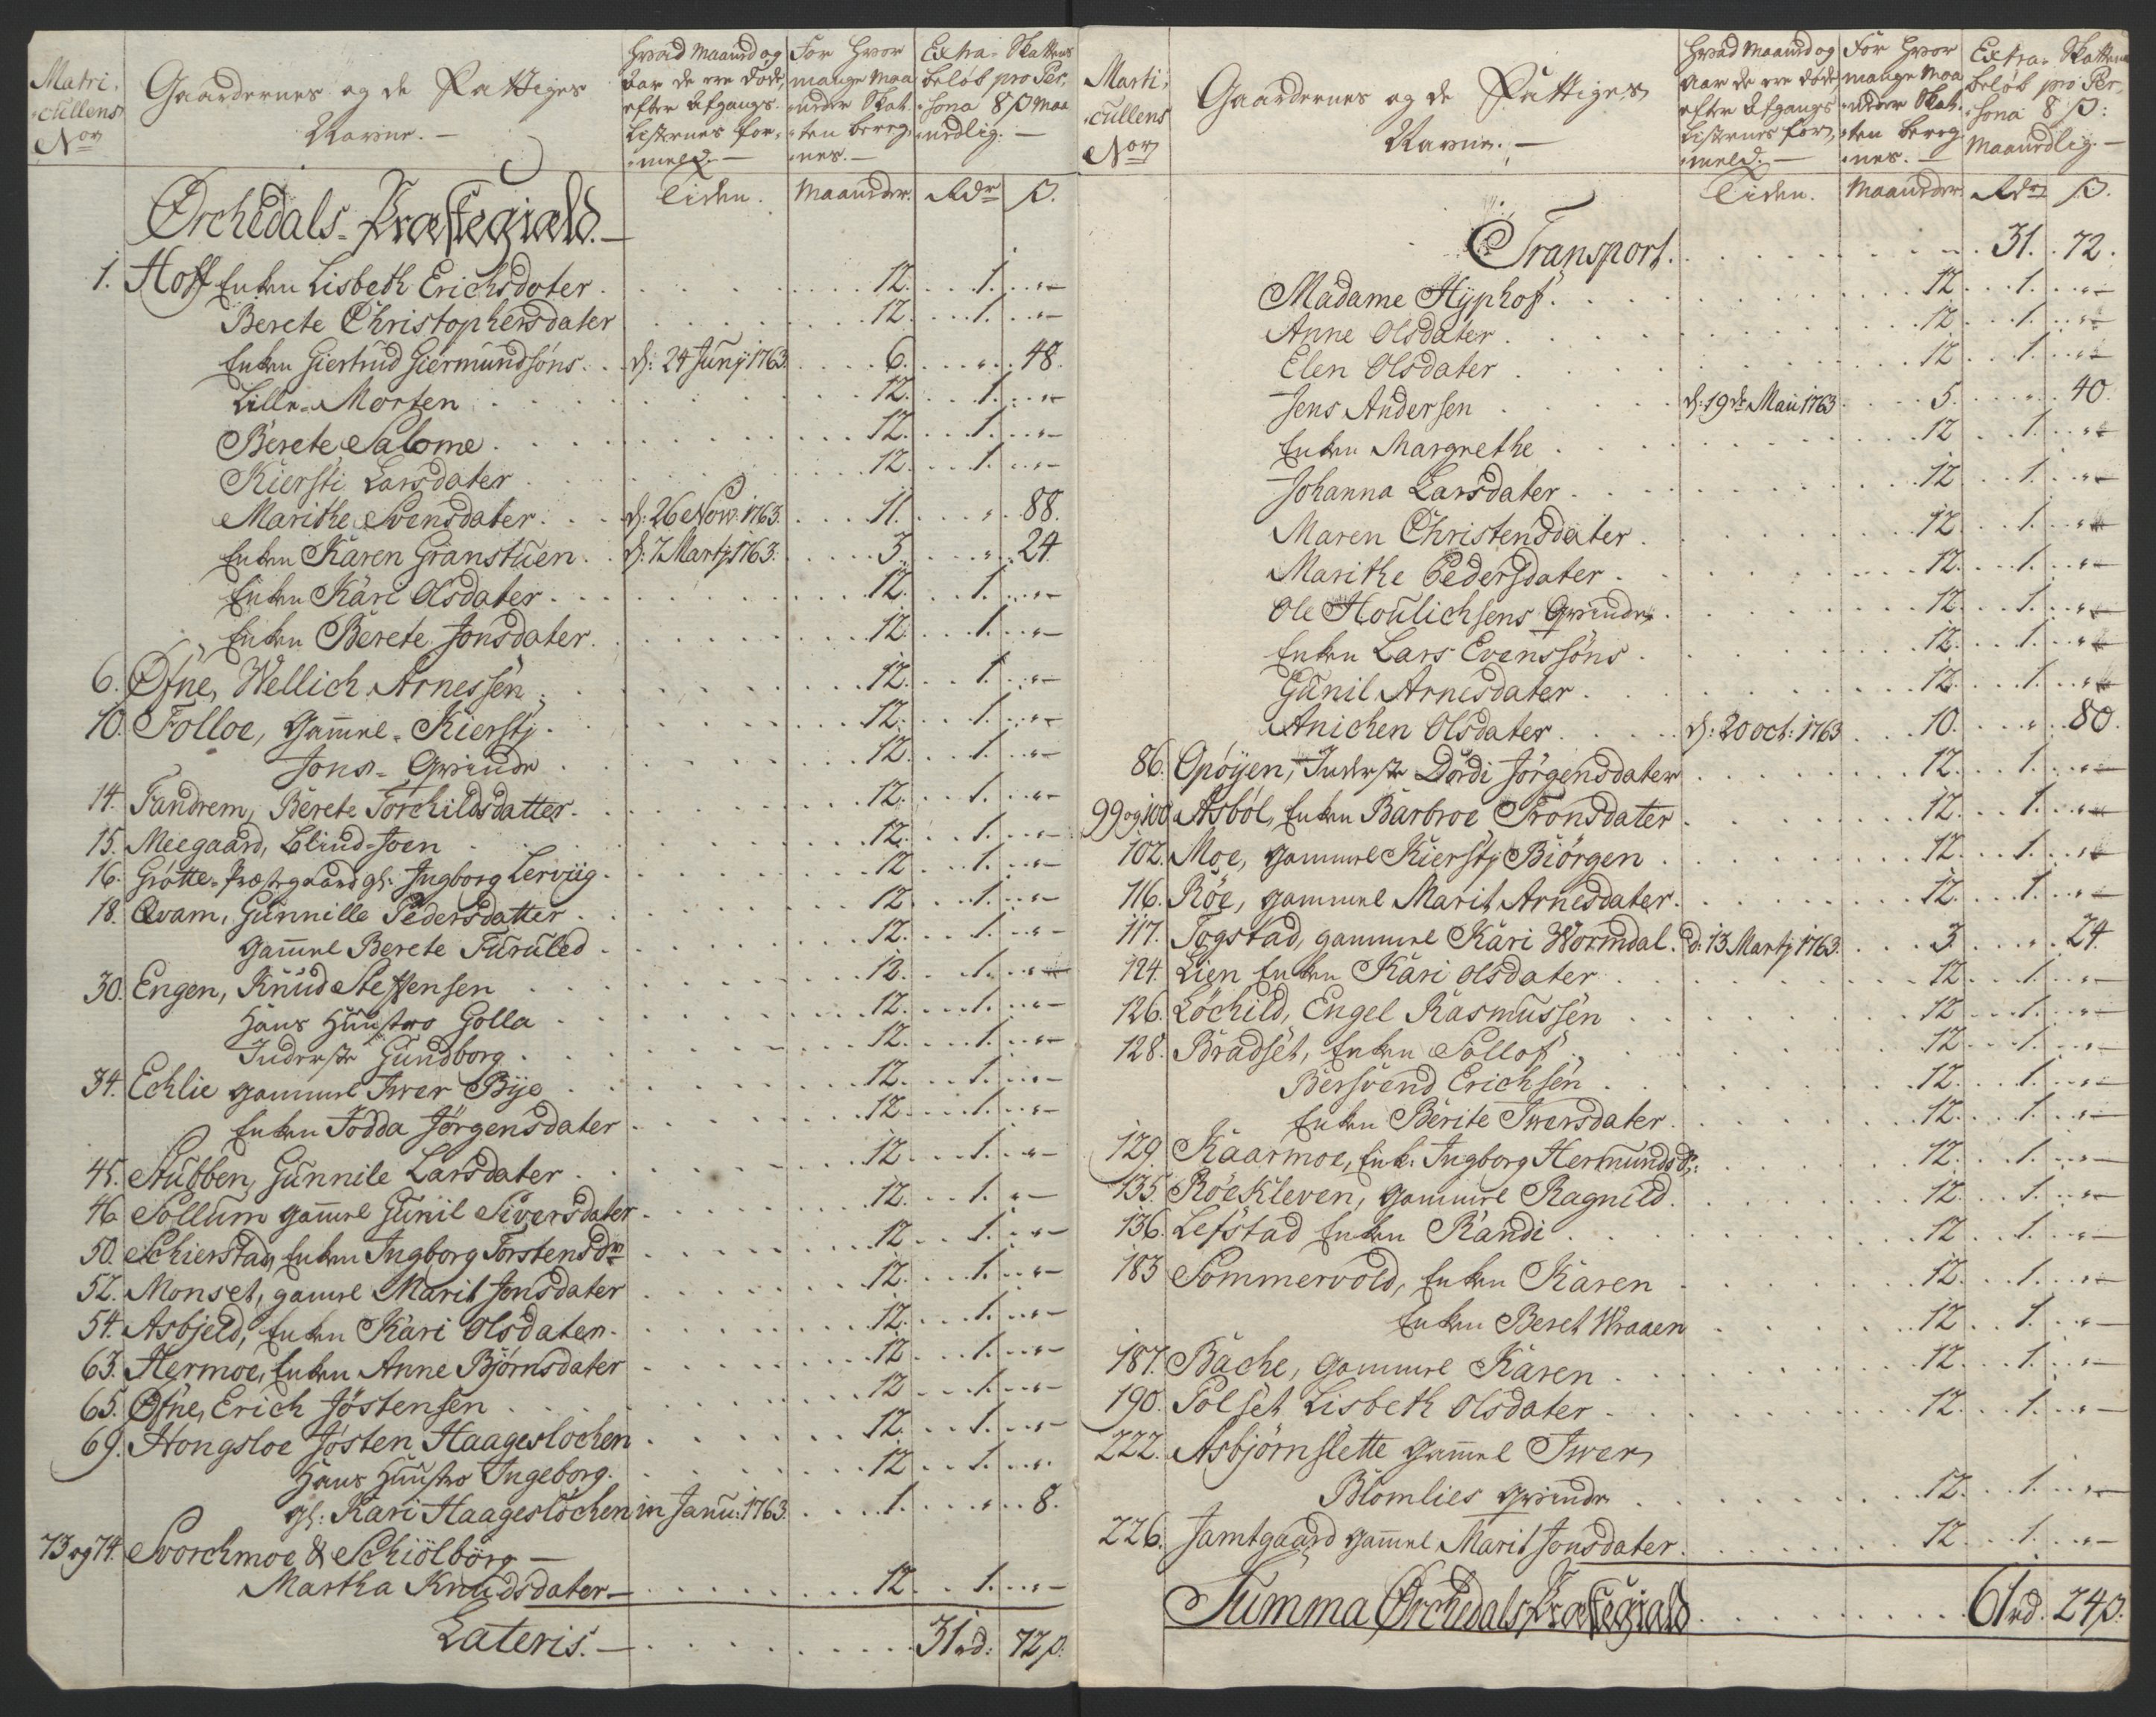 Matri-
cullens
Nor
Gaardernes og de Fattiges
Navne. —
Hvad Maaned og
Aar de ere døde,
efter Afgangs-
Listernes for-
meld. —
For hvor
mange Maa-
neder Skat-
ten bereg-
nes. —
Extra-Skattens
beløb pro Per-
sona 8 β Maa-
nedlig. —
Tiden. Maaneder. Rdr β.
Ørchedals Præstegield. —
1. Hoff Enken Lisbeth Erichsdater . 12. 1. „ —
Berete Christophersdater 12. 1. „ —
Enken Giertrud Giermundsøns. d: 24 Junj 1763. 6. „ 48.
Lille-Morten 12. 1. „ —
Berete Salome. 12. 1. „ —
Kiersti Larsdater 12. 1. „ —
Marithe Svensdater. d: 26 Nov: 1763. 11. „ 88.
Enken Karen Granstuen. d: 7 Martj 1763. 3. „ 24.
Enken Kari Olsdater. 12. 1. „ —
Enken Berete Jonsdater. 12. 1. „ —
6. Øfne, Wellich Arnessen. 12. 1. „ —
10. Folloe, Gamel-Kierstj. 12. 1. „ —
Jons-Qvinde 12. 1. „ —
14. Fandrem, Berete Torchildsdatter. 12. 1. „ —
15. Meegaard, Blind-Joen 12. 1. „ —
16. Grøtte-Præstgaard gl: Ingborg Lervüg. 12 1. „ —
18. Qvam, Gunnille Pedersdatter. 12. 1. „ —
Gamel Berete Furuled. 12. 1. „ —
30. Engen, Knud Steffensen 12. 1. „ —
Hans Hustro Golla 12. 1. „ —
Inderste Gundborg. 12. 1. „ —
34. Echlie gammel Iver Bye 12. 1. „ —
Enken Todda Jørgensdater 12. 1. „ —
45. Stubben, Gunnile Larsdater 12. 1. „ —
46 Sollum gamel Gunil Siversdater 12. 1. „ —
50. Schierstad, Enken Ingborg Torstensdr 12 1. „ —
52. Monset, gamel Marit Jonsdater 12. 1. „ —
54. Asbjeld, Enken Kari Olsdater. 12. 1. „ —
63. Hermoe, Enken Anne Bjørnsdater 12 1. „ —
65. Øfne, Erich Jøstensen 12 1. „ —
69. Hongsloe Jøsten Haagesløchen 12. 1. „ —
Hans Hustro Ingeborg. 12 1. „
gl: Kari Haagesløchen in Janu: 1763. 1. „ 8.
73 og 74. Svorchmoe & Schiölbörg —
Martha Knudsdater — 12. 1. „ —
Lateris. — 31 rd: 72 β.
Matri-
cullens
Nor
Gaardernes og de Fattiges
Navne. —
Hvad Maaned og
Aar de ere døde,
efter Afgangs
Listernes for-
meld. —
For hvor
mange Maa-
neder Skat-
ten bereg-
nes. —
Extra-Skattens
beløb pro Per-
sona 8 β:
Maanedlig. —
Tiden. Maaneder. Rdr β.
Transport. 31. 72.
Madame Hyphof. 12. 1. „ —
Anne Olsdater. 12 1. „ —
Elen Olsdater 12 1. „ —
Jens Andersen d: 19de Maii 1763 5. „ 40.
Enken Margrethe 12 1. „ —
Johanna Larsdater. 12 1. „ —
Maren Christensdater. 12. 1. „ —
Marithe Pedersdater. 12. 1. „ —
Ole Houlichsens Qvinde. 12. 1. „ —
Enken Lars Evenssøns. 12. 1. „ —
Gunil Arnesdater. 12. 1. „ —
Anichen Olsdater. d: 20 oct: 1763 10. „ 80.
86. Opöyen, Inderste Dordi Jørgensdater 12. 1. „ —
99 og 100 Asbøl, Enken Barbroe Tronsdater 12. 1. „ —
102. Moe, gammel Kierstj Biørgen. 12. 1. „ —
116. Röe, gammel Marit Arnesdater. 12. 1. „ —
117. Togstad, gammel Kari Wormdal. d. 13 Martj 1763. 3 „ 24.
124. Lien Enken Kari olsdater 12 1. „ —
126. Löchild, Engel Rasmussen 12 1. „ —
128. Bradset, Enken Sollof 12 1. „ —
Bersvend Erichsen. 12. 1. „ —
Enken Berite Iversdater. 12. 1. „ —
129. Kaarmoe, Enk: Ingborg Hermundsdr: 12. 1. „ —
135. Röekleven, gammel Ragnild. 12. 1. „ —
136. Lefstad Enken Randi 12 1. „ —
183 Sommervold, Enken Karen 12. 1. „ —
Enken Beret Wraaen 12 1. „ —
187. Bache, gammel Karen. 12. 1. „ —
190. Solset Lisbeth Olsdater. 12. 1. „ —
222. Asbjørnslette gamel Iver
Blomlies Qvinde 12. 1. „ —
226. Jamtgaard gamel Marit Jonsdater. 12 1. „ —
Summa Ørchedals Præstegiæld 61 rd. 24 β.